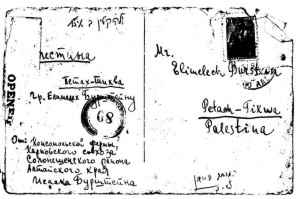 Палестина
Петах-тиква
Гр. Елимелех Бурштейну
От: Комсомольской фермы,
Харьковского совхоза
Солонешенского района
Алтайского края
Исаака Бурштейна
68
OPEN
Mr.
Elimelech Burstein
Petach-Tikwa
Palestina